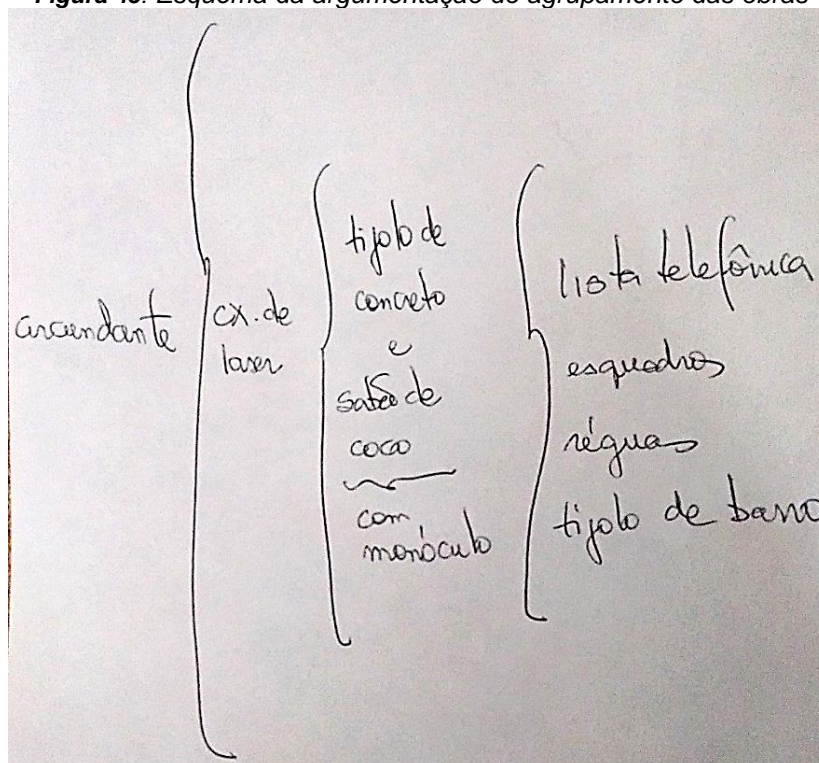 Figura Esquema da argumentação agrupamento das obras
circundante
cx. de
laser
tijolo de
concreto
e
sabão de
coco
com
monóculo
lista telefônica
esquadros
réguas
tijolo de barro